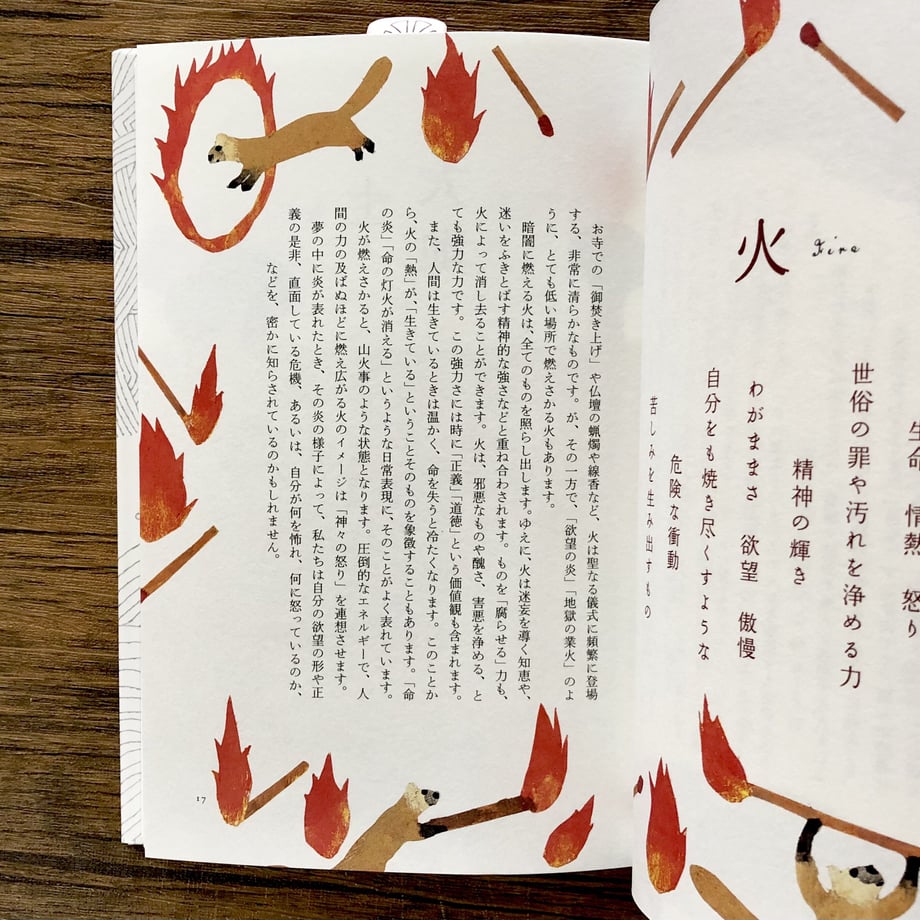 火
Fire
生命 情熱 怒り
世俗の罪や汚れを浄める力
精神の輝き
わがままさ 欲望 傲慢
自分をも焼き尽くすような
危険な衝動
苦しみを生み出すもの
お寺での「御焚き上げ」や仏壇の蝋燭や線香など、火は聖なる儀式に頻繁に登場
する、非常に清らかなものです。が、その一方で、「欲望の炎」「地獄の業火」のよ
うに、とても低い場所で燃えさかる火もあります。
暗闇に燃える火は、全てのものを照らし出します。ゆえに、火は迷妄を導く知恵や、
迷いをふきとばす精神的な強さなどと重ね合わされます。ものを「腐らせる」力も、
火によって消し去ることができます。火は、邪悪なものや醜さ、害悪を浄める、と
ても強力な力です。この強力さには時に「正義」「道徳」という価値観も含まれます。
また、人間は生きているときは温かく、命を失うと冷たくなります。このことか
ら、火の「熱」が、「生きている」ということそのものを象徴することもあります。「命
の炎」「命の灯火が消える」というような日常表現に、そのことがよく表れています。
火が燃えさかると、山火事のような状態となります。圧倒的なエネルギーで、人
間の力の及ばぬほどに燃え広がる火のイメージは「神々の怒り」を連想させます。
夢の中に炎が表れたとき、その炎の様子によって、私たちは自分の欲望の形や正
義の是非、直面している危機、あるいは、自分が何を怖れ、何に怒っているのか、
などを、密かに知らされているのかもしれません。
17